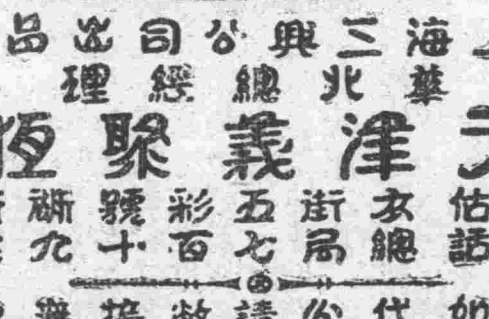 海三興公司出品
華北總經理
津義聚恆
估衣街五彩號衚
話總局七百十九